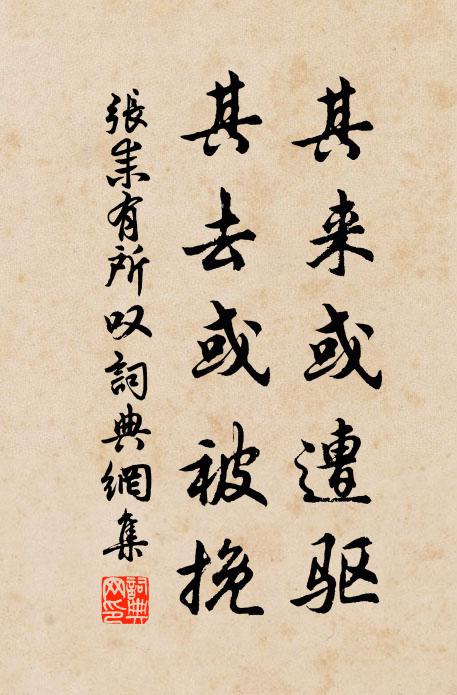 其来或遭驱
其去或被挽
張耒有所叹詞典網集
詞典網印